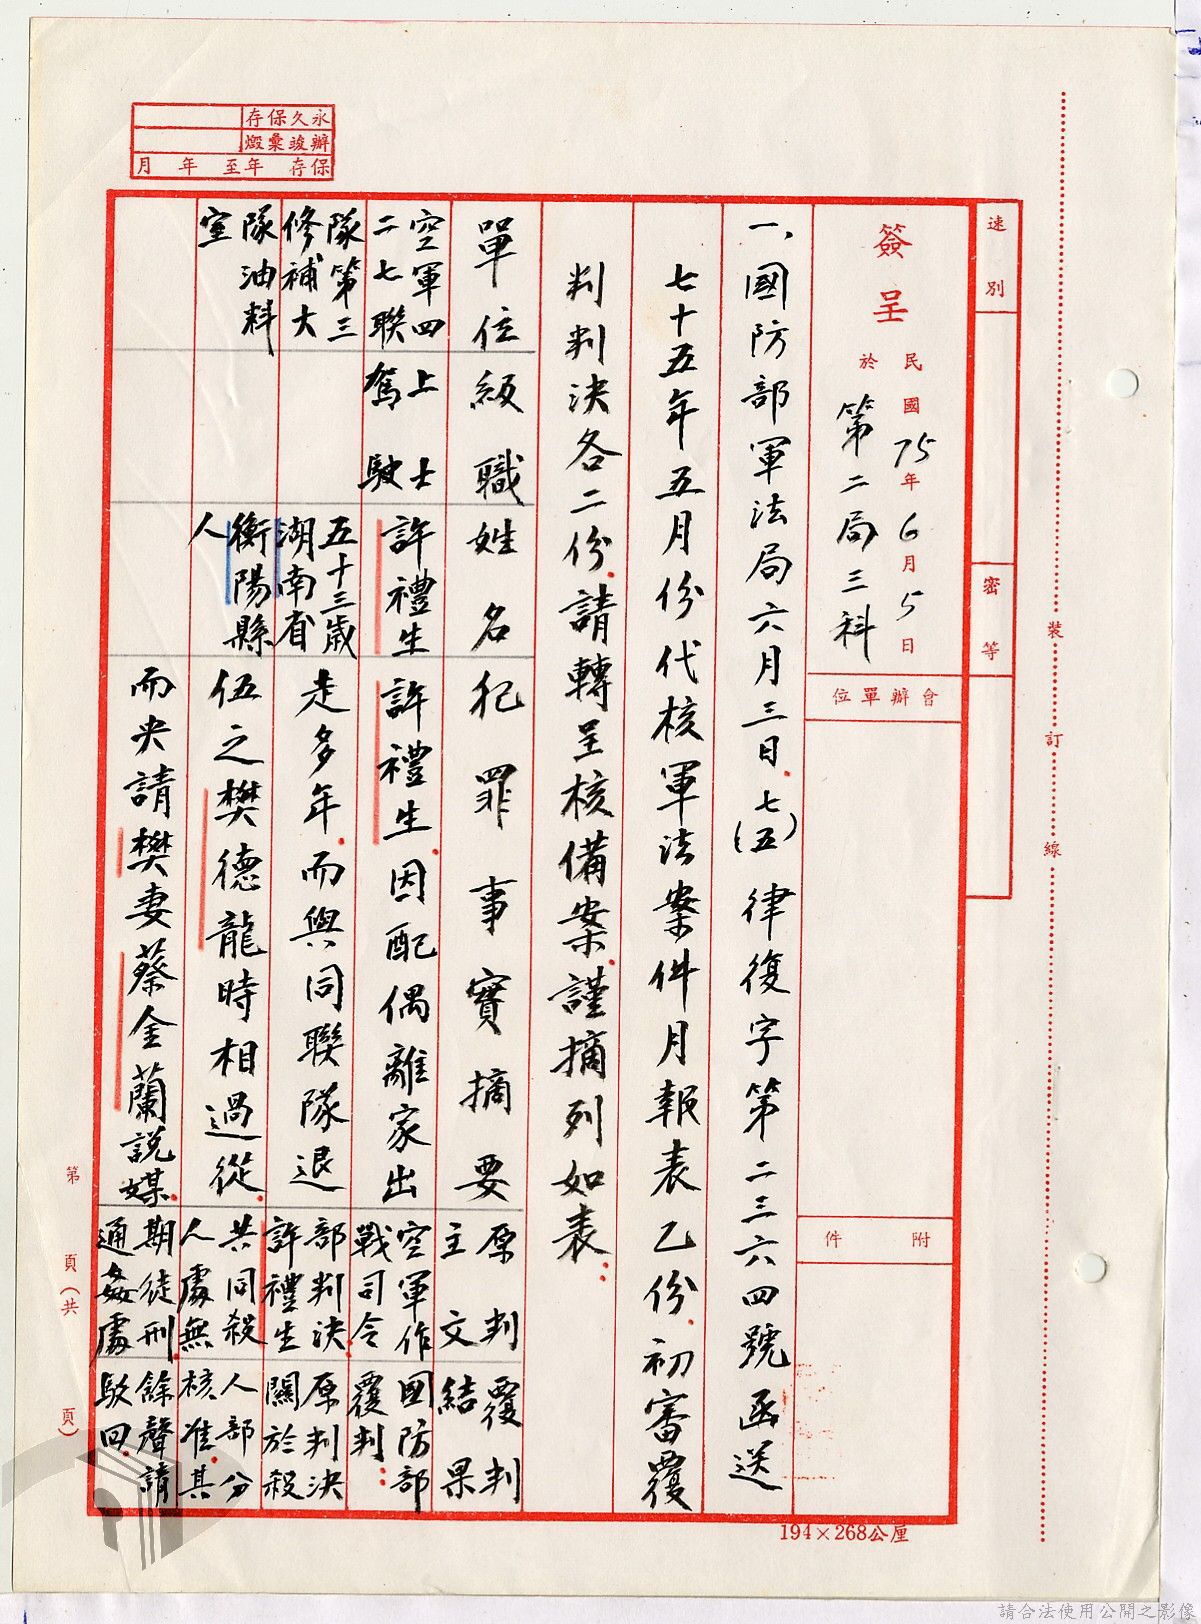 永久保存
辦竣彙燬
保存 年至 年 月
速別
密等
簽呈
民國75年6月5日
於第二局三科
會辦單位
附件
一、國防部軍法局六月三日(七五)律復字第二三六四號函送
七十五年五月份代核軍法案件月報表乙份、初審覆
判判決各二份、請轉呈核備案、謹摘列如表:
單位
級職
姓名
犯罪事實摘要
原判
主文
覆判
結果
空軍四
二七聯
隊第三
修補大
隊油料
室
上士
駕駛
許禮生
五十三歲
湖南省
衡陽縣
人
許禮生因配偶離家出
走多年,而與同聯隊退
伍之樊德龍時相過從,
而央請樊妻蔡金蘭說媒,
空軍作
戰司令
部判決:
許禮生
共同殺
人處無
期徒刑,
通姦處
國防部
覆判:
原判決
關於殺
人部分
核准,其
餘聲請
駁回。
裝
訂
線
第 頁(共 頁)
194×268公厘
請合法使用公開之影像